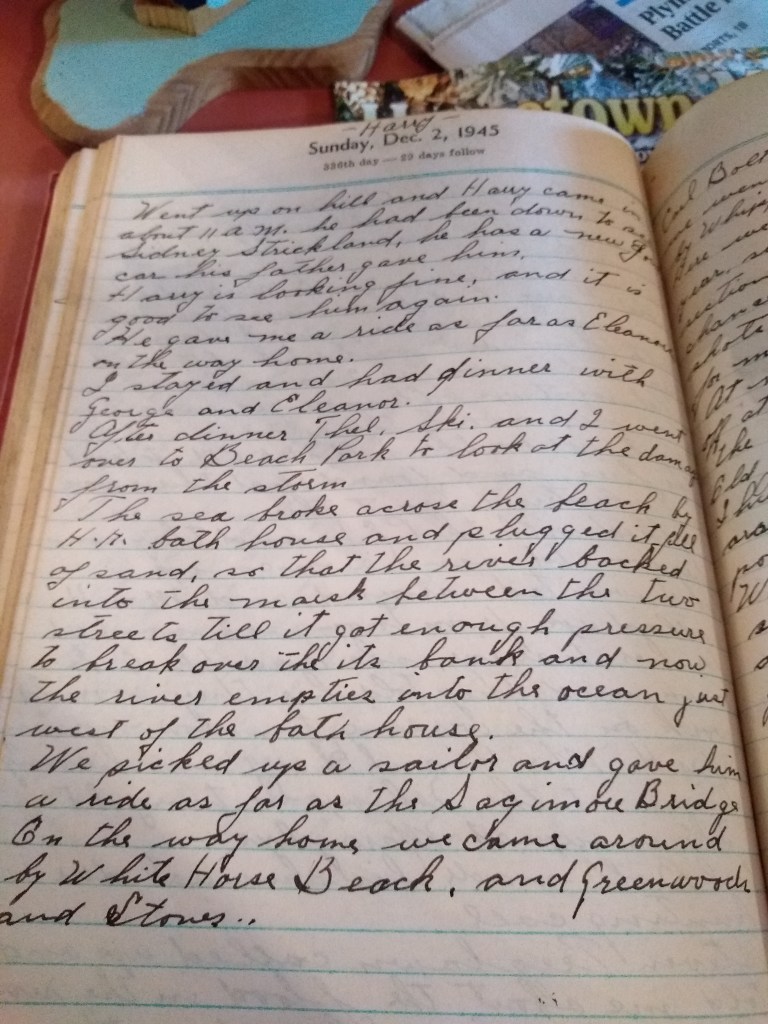 Plym
Battle
town
- Harry -
Sunday, Dec. 2, 1945
336th day — 29 days follow
Went up on hill and Harry came in
about 11 a.m. he had been down to
Sidney Strickland, he has a new
car his father gave him.
Harry is looking fine, and it is
good to see him again.
He gave me a ride as far as Eleanors
on the way home.
I stayed and had dinner with
George and Eleanor.
After dinner Thel, Ski. and I went
over to Beach Park to look at the damage
from the storm
The sea broke across the beach by
H.H. bath house and plugged it full
of sand, so that the river backed
into the marsh between the two
streets till it got enough pressure
to break over the its bank and now
the river empties into the ocean just
west of the bath house.
We picked up a sailor and gave him
a ride as far as the Sagimore Bridge
On the way home we came around
by White Horse Beach, and Greenwoods
and Stones..
Carl Bolt
by
year,
shots
for
At
off at
the
Old